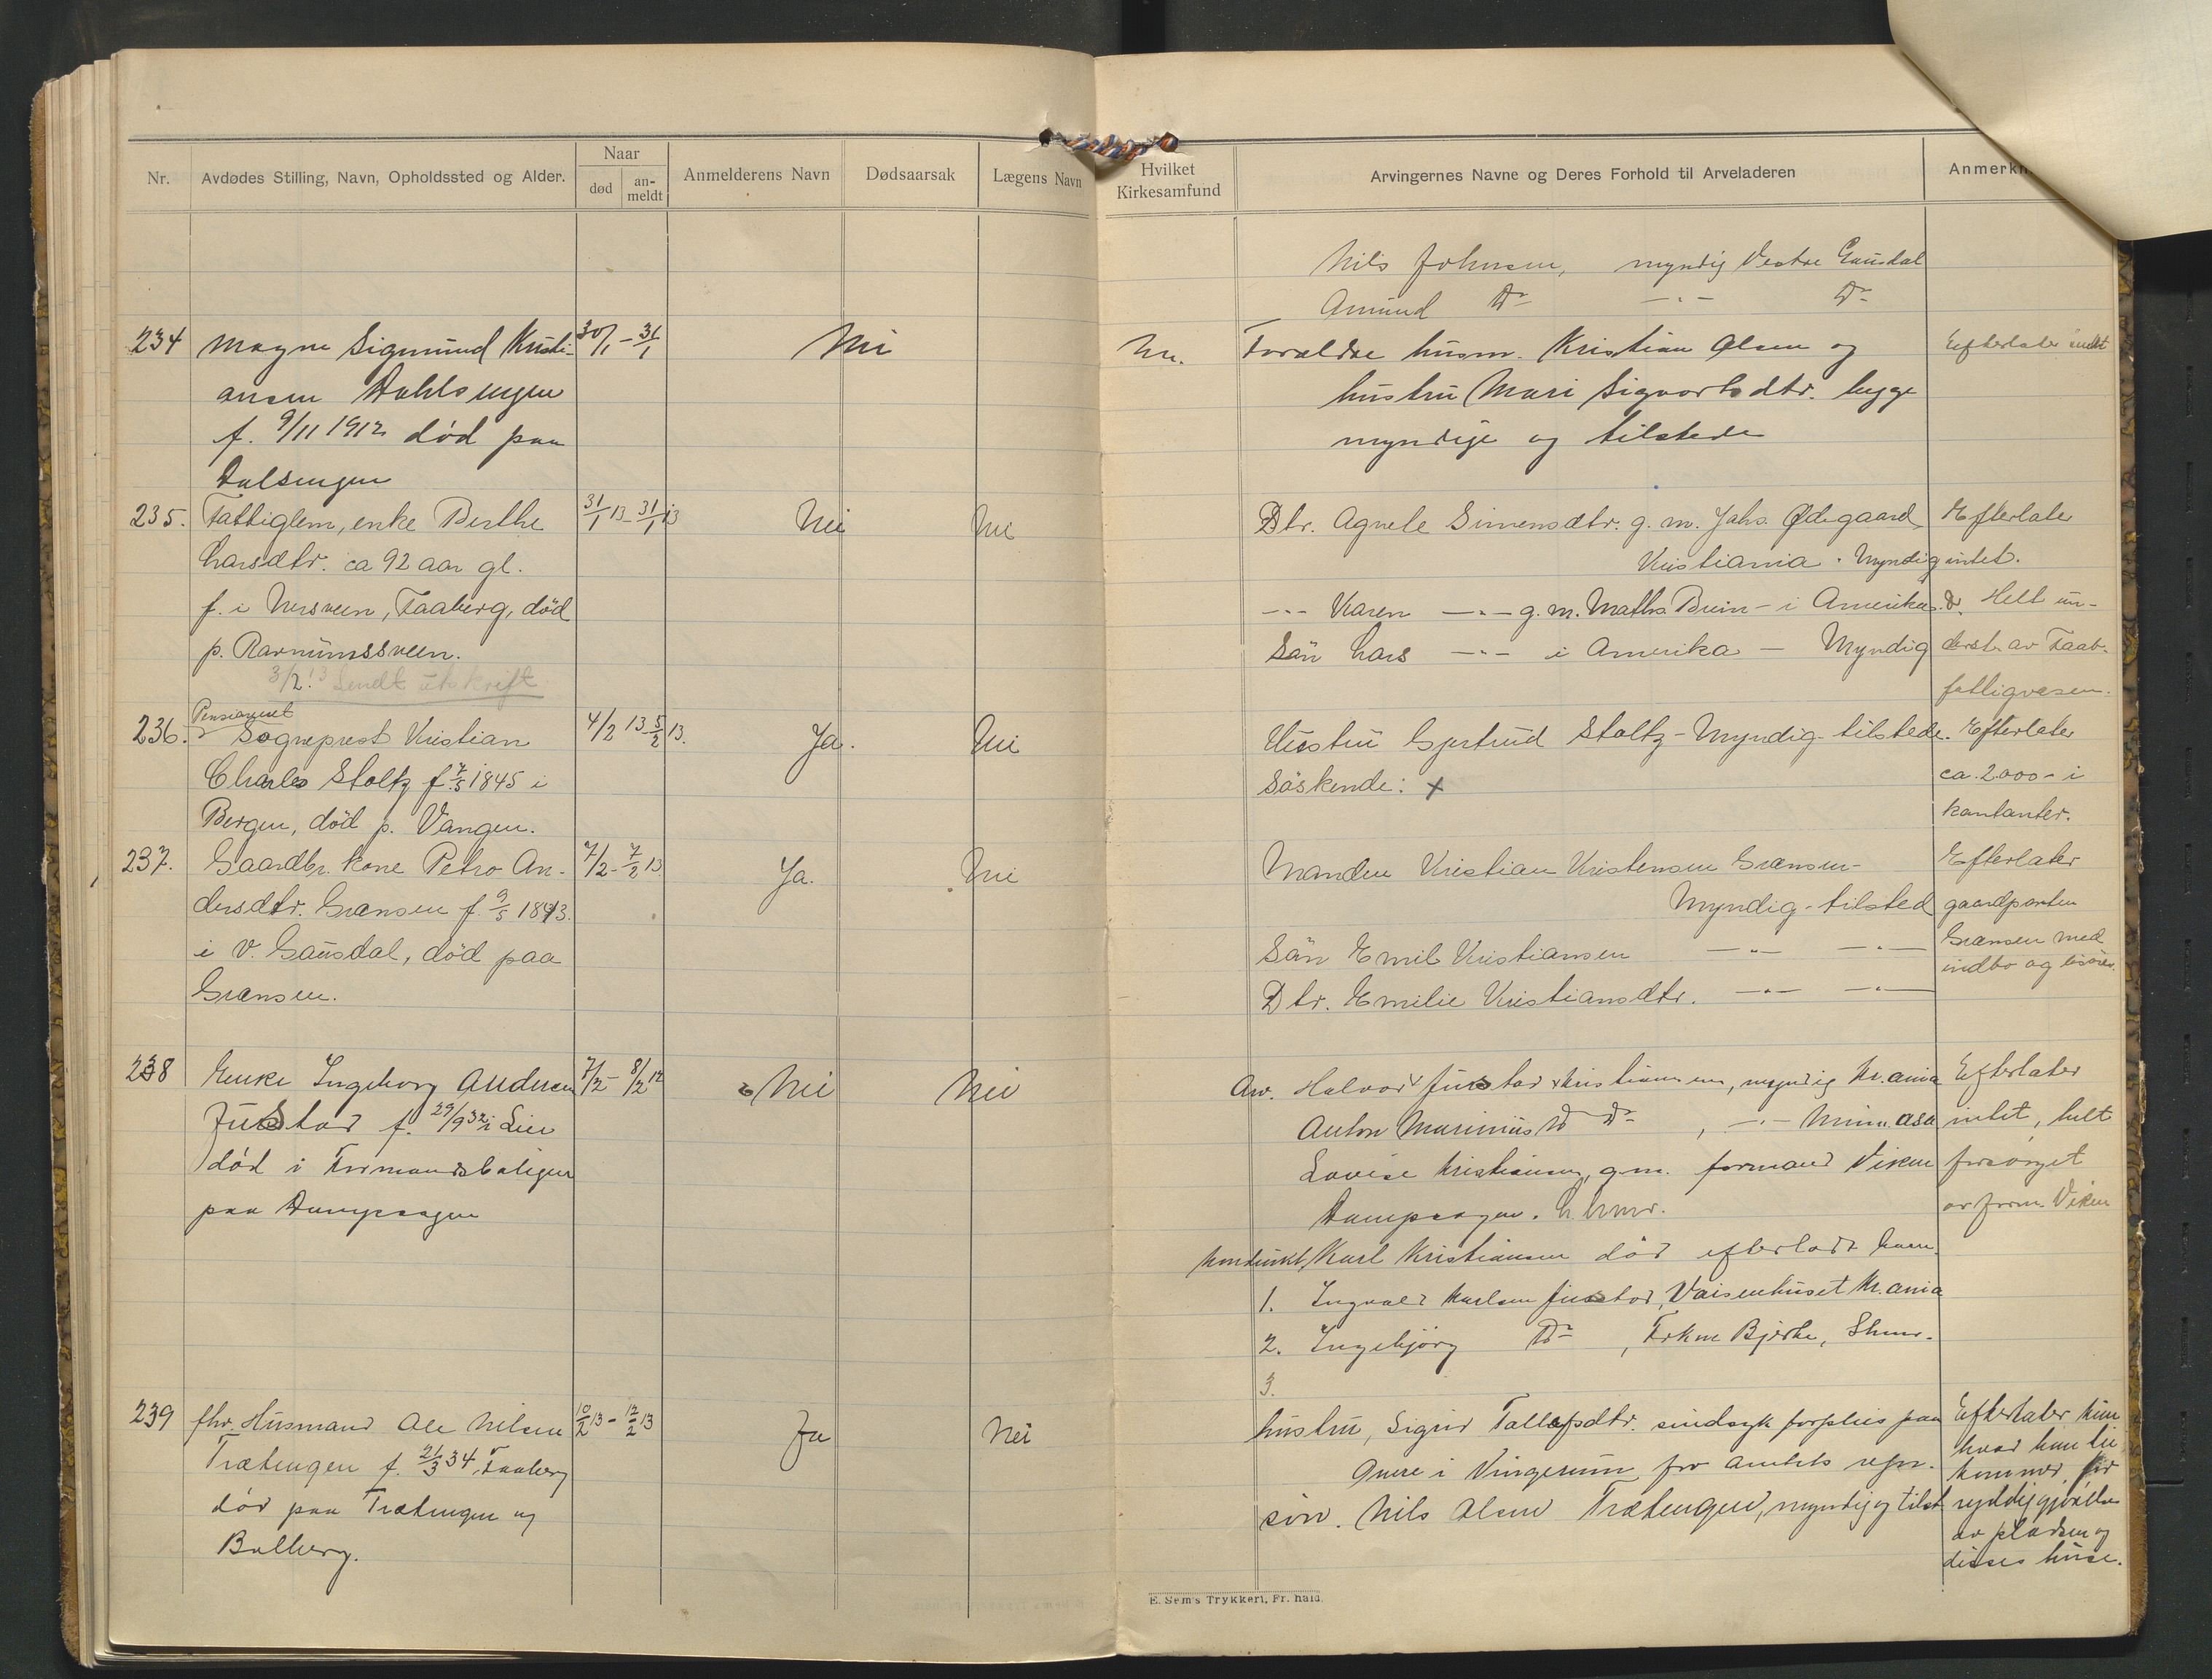 Nr.
Avdødes Stilling, Navn, Opholdssted og Alder.
Naar
død
an-
meldt
Anmelderens Navn
Dødsaarsak
Lægens Navn
Hvilket
Kirkesamfund
Arvingernes Navne og Deres Forhold til Arveladeren
Anmerkn
Nils Johnsen, myndig Vestre Gausdal
Amund Do — " — Do
234 Magne Sigmund Kristi- 30/1 - 31/1 Nei
ansen Dahlsengen
f. 9/11 1912 død paa
Dalsengen
Forældre husm. Kristian Olsen og
hustru Mari Sigvartsdtr. begge
myndige og tilstede
Efterlater intet
235. Fattiglem, enke Berthe 31/1 13 - 31/1 13 Nei Nei
Larsdtr. ca 92 aar gl.
f. i Nersveen, Faaberg, död
p. Ramunssveen.
3/2 13 Sendt utskrift
Dtr. Agnete Simensdtr. g. m. Johs. Ødegaard
Kristiania. Myndig
— " — Karen — " — g. m. Maths Bruin - i Amerika.
Sön Lars — " — i Amerika — Myndig
Efterlater
intet.
do. Helt un-
derst. av Faab.
fattigvæsen.
236. Pensioneret
Sogneprest Kristian 4/2 13 5/2 13. Ja. Nei
Charles Stoltz f. 7/5 1845 i
Bergen, död p. Vangen.
Hustru Gjertrud Stoltz - Myndig - tilstede.
Söskende: x
Efterlater
ca. 2000 - i
kontanter.
237. Gaardbr. kone Petra An- 7/2 - 7/2 13 Ja. Nei
dersdtr. Grænsen f. 9/5 1843.
i V. Gausdal, död paa
Grænsen.
Manden Kristian Kristensen Grænsen -
Myndig - tilsted
Sön Emil Kristiansen — " — — " —
Dtr. Emilie Kristiansdtr. — " — — " —
Efterlater
gaardparten
Grænsen med
indbo og lösöre.
238 Enke Ingeborg Andersen 7/2 - 8/2 Nei Nei
Justad f. 29/9 32 i Lier
død i Formandsboligen
paa Dampsagen
Arv. Halvor Justad Kristiansen, myndig Kr.ania
Anton Marinius Do Do, — " —
Lovise Kristiansen, g.m. formand Viken
Dampsagen. L.hmr.
Konduktr. Karl Kristiansen död efterladt barn.
1. Ingvald Karlsen Justad, Vaisenhuset Kr.ania
2. Ingebjørg Do, Bjerke, Lhmr.
3.
Efterlater
intet, helt
forsörget
av form. Viken
239 fhv. Husmand Ole Nilsen 10/2 13 - 12/2 13 Ja Nei
Trætengen f. 21/3 34, Faaberg
død paa Trætengen ug
Balberg.
hustru, Sigrid Tollefsdtr. sindssyk forpleies paa
i Vingerum for amtets regn.
sön. Nils Olsen Trætengen, myndig og tilst
Efterlater kun
hvad han til
kommer for
ryddiggjörelse
av pladsen og
disses huse.
E. Sem's Trykkeri, Fr. hald.